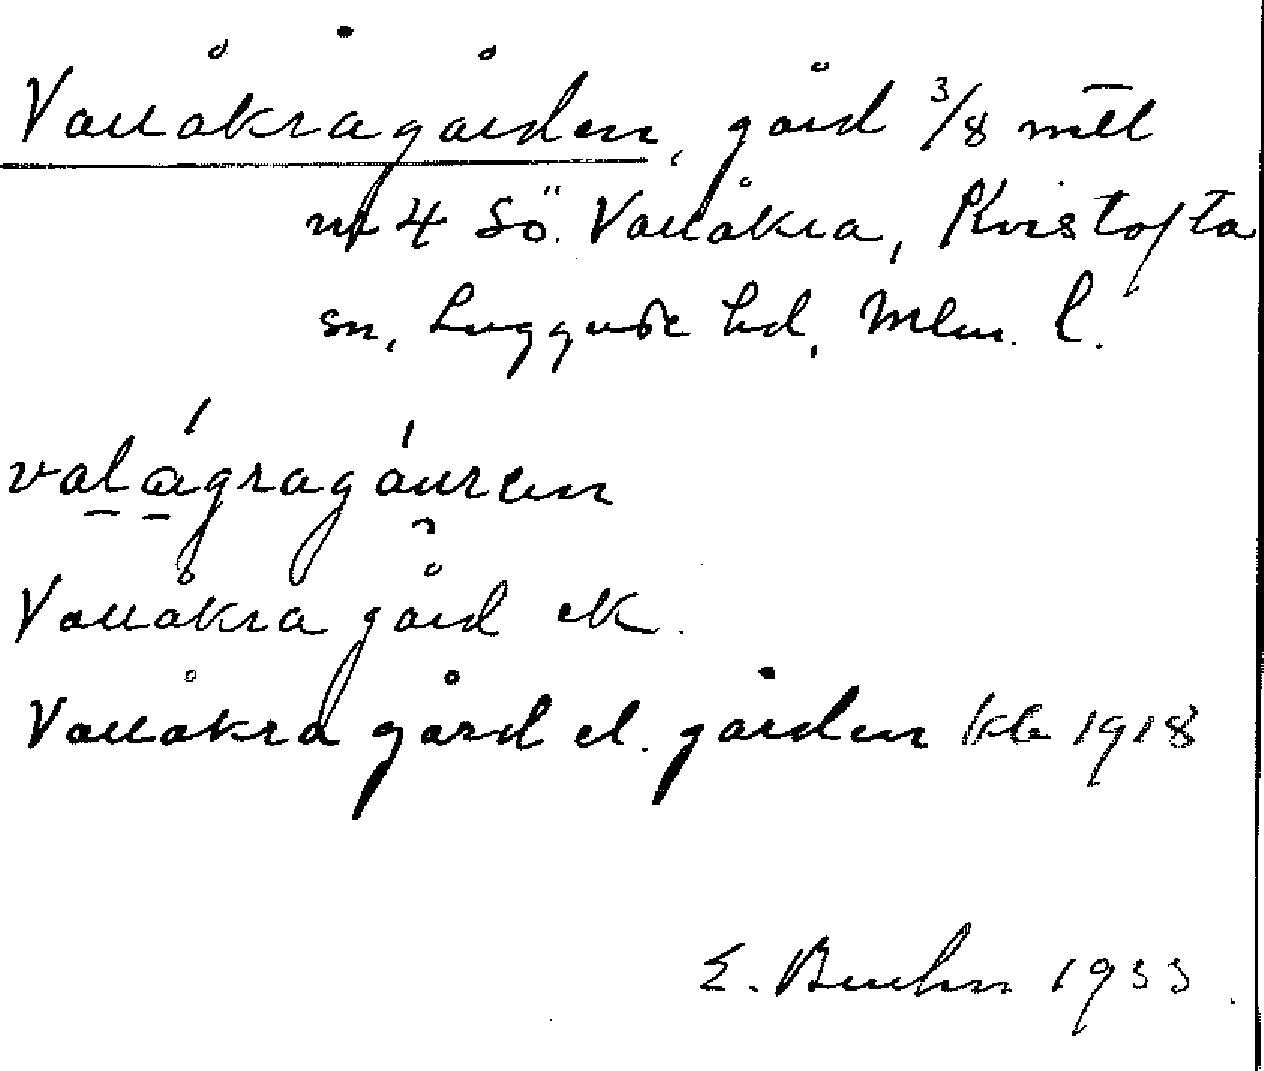 Vallåkragården, gård 3/8 mtl
nr 4 Sö. Vallåkra, Kvistofta
sn, Luggude hd, Mlm. l.
valågragáuren
Vallåkra gård ek.
Vallåkra gård el. gården kb 1918
E. Bruhn 1933